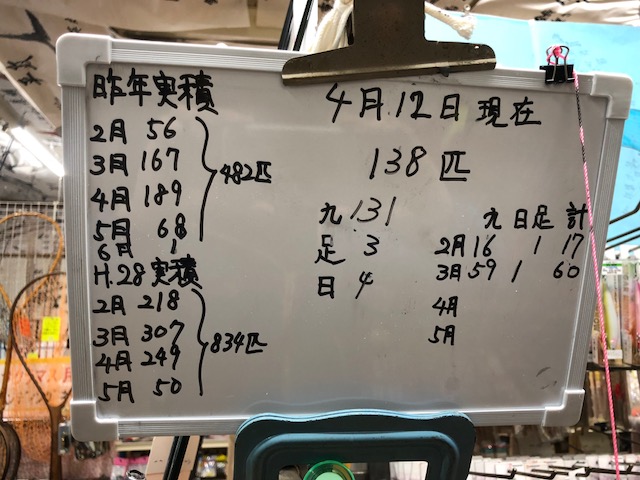 昨年実積
2月 56
3月 167
4月 189
5月 68
6月 1
482匹
H.28 実積
2月 218
3月 307
4月 249
5月 50
834匹
4月12日 現在
138匹
九 131
足 3
日 4
九 日 足 計
2月 16 1 17
3月 59 1 60
4月
5月